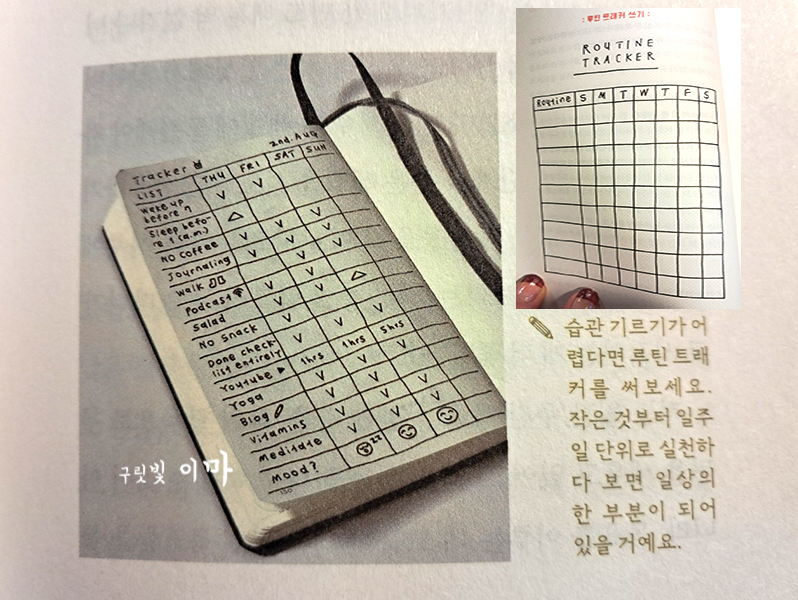 Tracker
2nd. AUG
LIST THU FRI SAT SUN
wake up before 7 V V
Sleep before 1 (a.m.) △
NO coffee V V V
Journaling V V V
Walk V V
Podcast V V △
Salad V V
No snack V
Done check-
list entirely V V V
Youtube ▶ 1hrs 1hrs 5hrs
Yoga V V V
Blog V V
Vitamins V V V
Meditate V V V
Mood? zz
130
구릿빛 이마
: 루틴 트래커 쓰기 :
ROUTINE
TRACKER
Routine S M T W T F S
습관 기르기가 어
렵다면 루틴 트래
커를 써보세요.
작은 것부터 일주
일 단위로 실천하
다 보면 일상의
한 부분이 되어
있을 거예요.